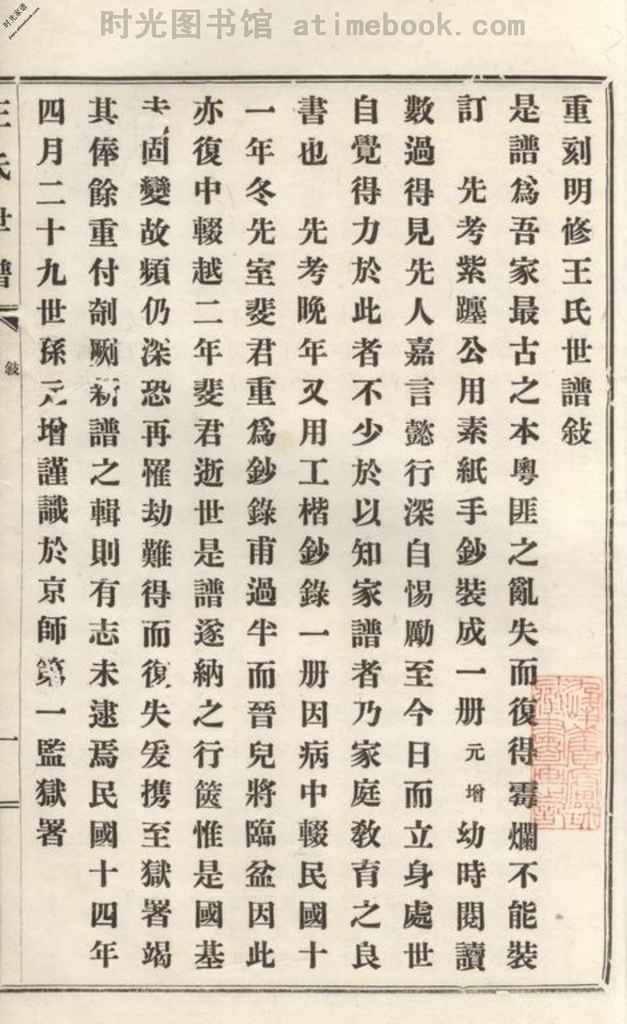 时光图书馆 atimebook.com
时光家谱
www.atimebook.com
重刻明修王氏世譜敍
是譜爲吾家最古之本粵匪之亂失而復得霉爛不能裝
訂　先考紫躔公用素紙手鈔裝成一册元增幼時閱讀
數過得見先人嘉言懿行深自惕勵至今日而立身處世
自覺得力於此者不少於以知家譜者乃家庭敎育之良
書也　先考晚年又用工楷鈔錄一册因病中輟民國十
一年冬先室斐君重爲鈔錄甫過半而晉兒將臨盆因此
亦復中輟越二年斐君逝世是譜遂納之行篋惟是國基
未固變故頻仍深恐再罹劫難得而復失爰携至獄署竭
其俸餘重付剞劂新譜之輯則有志未逮焉民國十四年
四月二十九世孫元增謹識於京師第一監獄署
王氏世譜
敍
一